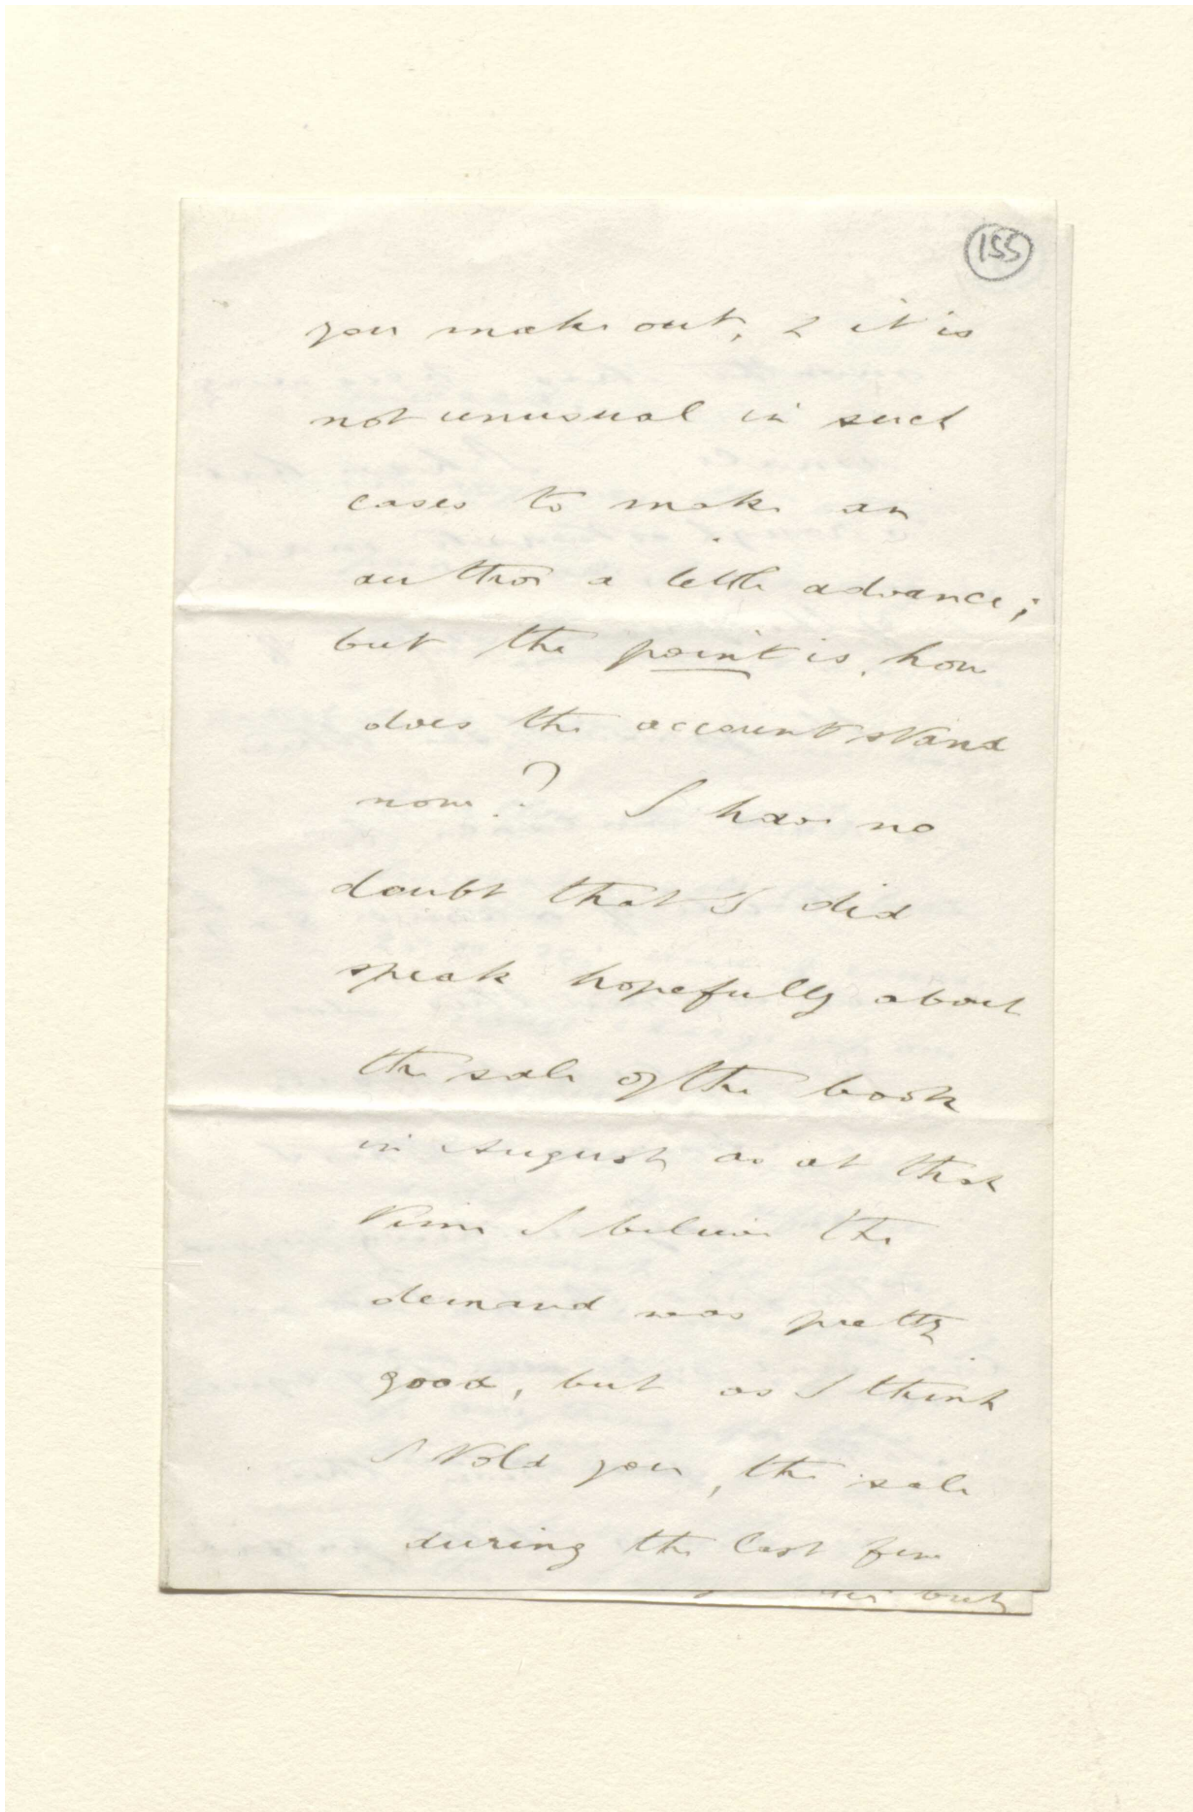 155
you make out, & it is
not unusual in such
cases to make an
author a little advance;
but the point is, how
does the account stand
now? I have no
doubt that I did
speak hopefully about
the sale of the book
in August, as at that
time I believe the
demand was pretty
good, but as I think
I told you, the sale
during the last few
but